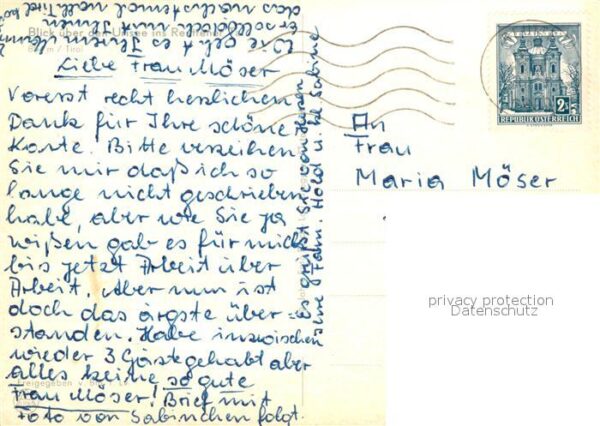 Blick über den Urisee ins Reuttener
Tirol
Wie geht es Ihnen u.
Liebe Frau Möser
Vorerst recht herzlichen
Dank für Ihre schöne
Karte. Bitte verzeihen
Sie mir daß ich so
lange nicht geschrieben
habe, aber wie Sie ja
wißen gab es für mich
bis jetzt Arbeit über
Arbeit. Aber nun ist
doch das ärgste über=
standen. Habe inzwischen
wieder 3 Gäste gehabt aber
alles keine so gute
Frau Möser! Brief mit
Foto von Sabinchen folgt.
Es grüßt Sie von Herzen
Ihre Fam. Hold u. kl. Sabine
Freigegeben v.
2
REPUBLIK ÖSTERREICH
An
Frau
Maria Möser
privacy protection
Datenschutz